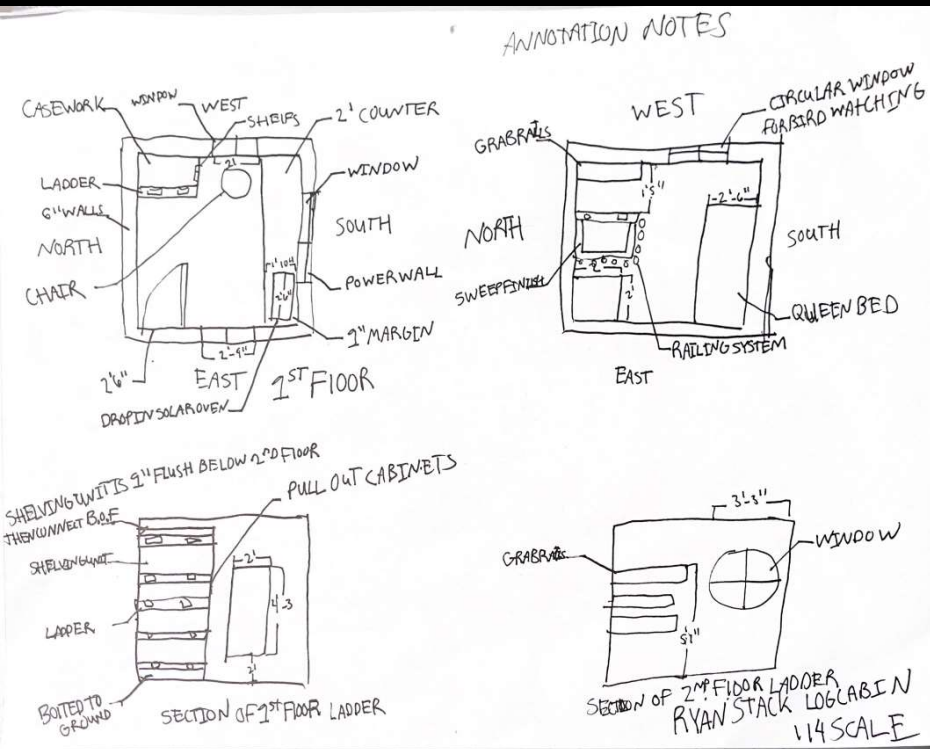 ANNOTATION NOTES
CASEWORK
WINDOW
WEST
SHELFS
2' COUNTER
LADDER
2'
WINDOW
6" WALLS
NORTH
SOUTH
CHAIR
1'10"
2'6"
POWERWALL
1" MARGIN
2'6"
2'-9"
EAST
1ST FLOOR
DROP IN SOLAR OVEN
WEST
CIRCULAR WINDOW
FOR BIRD WATCHING
GRABRAILS
1'5"
2'-6"
NORTH
SOUTH
SWEEP FINISH
2'
2'
QUEEN BED
RAILING SYSTEM
EAST
SHELVING UNIT IS 1" FLUSH BELOW 2ND FLOOR
THEN CONNECT B.O.F
PULL OUT CABINETS
SHELVING UNIT
2'
4-3
LADDER
2'
BOLTED TO
GROUND
SECTION OF 1ST FLOOR LADDER
3'-3"
GRABRAILS
WINDOW
SECTION OF 2ND FLOOR LADDER
RYAN STACK LOGCABIN
1/4 SCALE